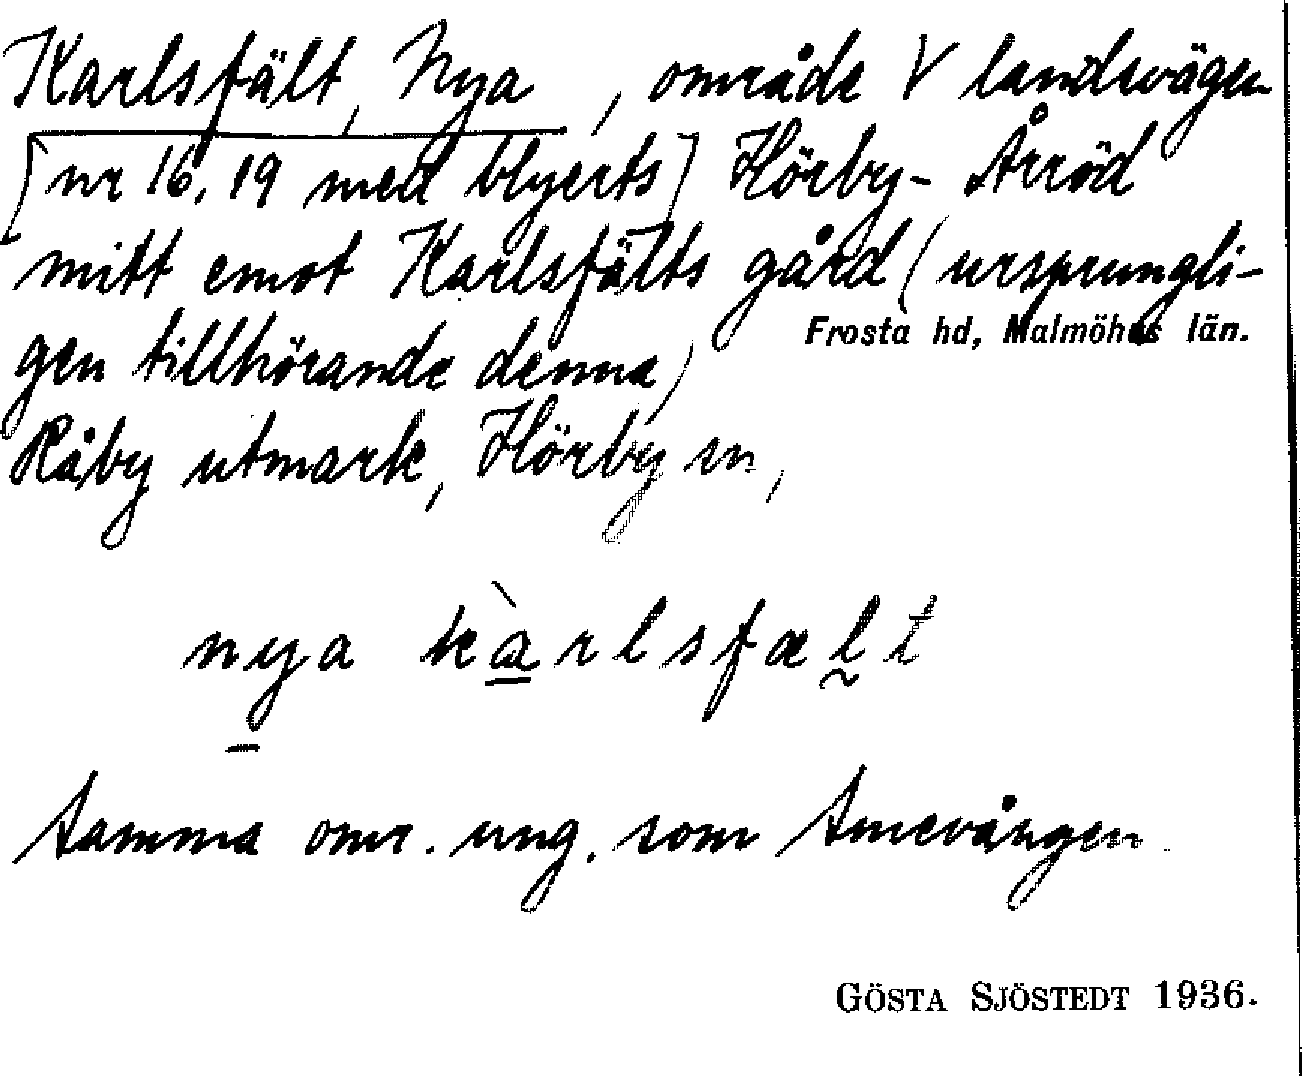 Karlsfält, Nya , område V landsvägen
[nr 16, 19 med blyerts] Hörby- Årröd
mitt emot Karlsfälts gård (ursprungli-
Frosta hd, Malmöhus län.
gen tillhörande denna)
Råby utmark, Hörby sn,
nya kàrlsfælt
Samma omr. ung. som Smevången.
GÖSTA SJÖSTEDT 1936.